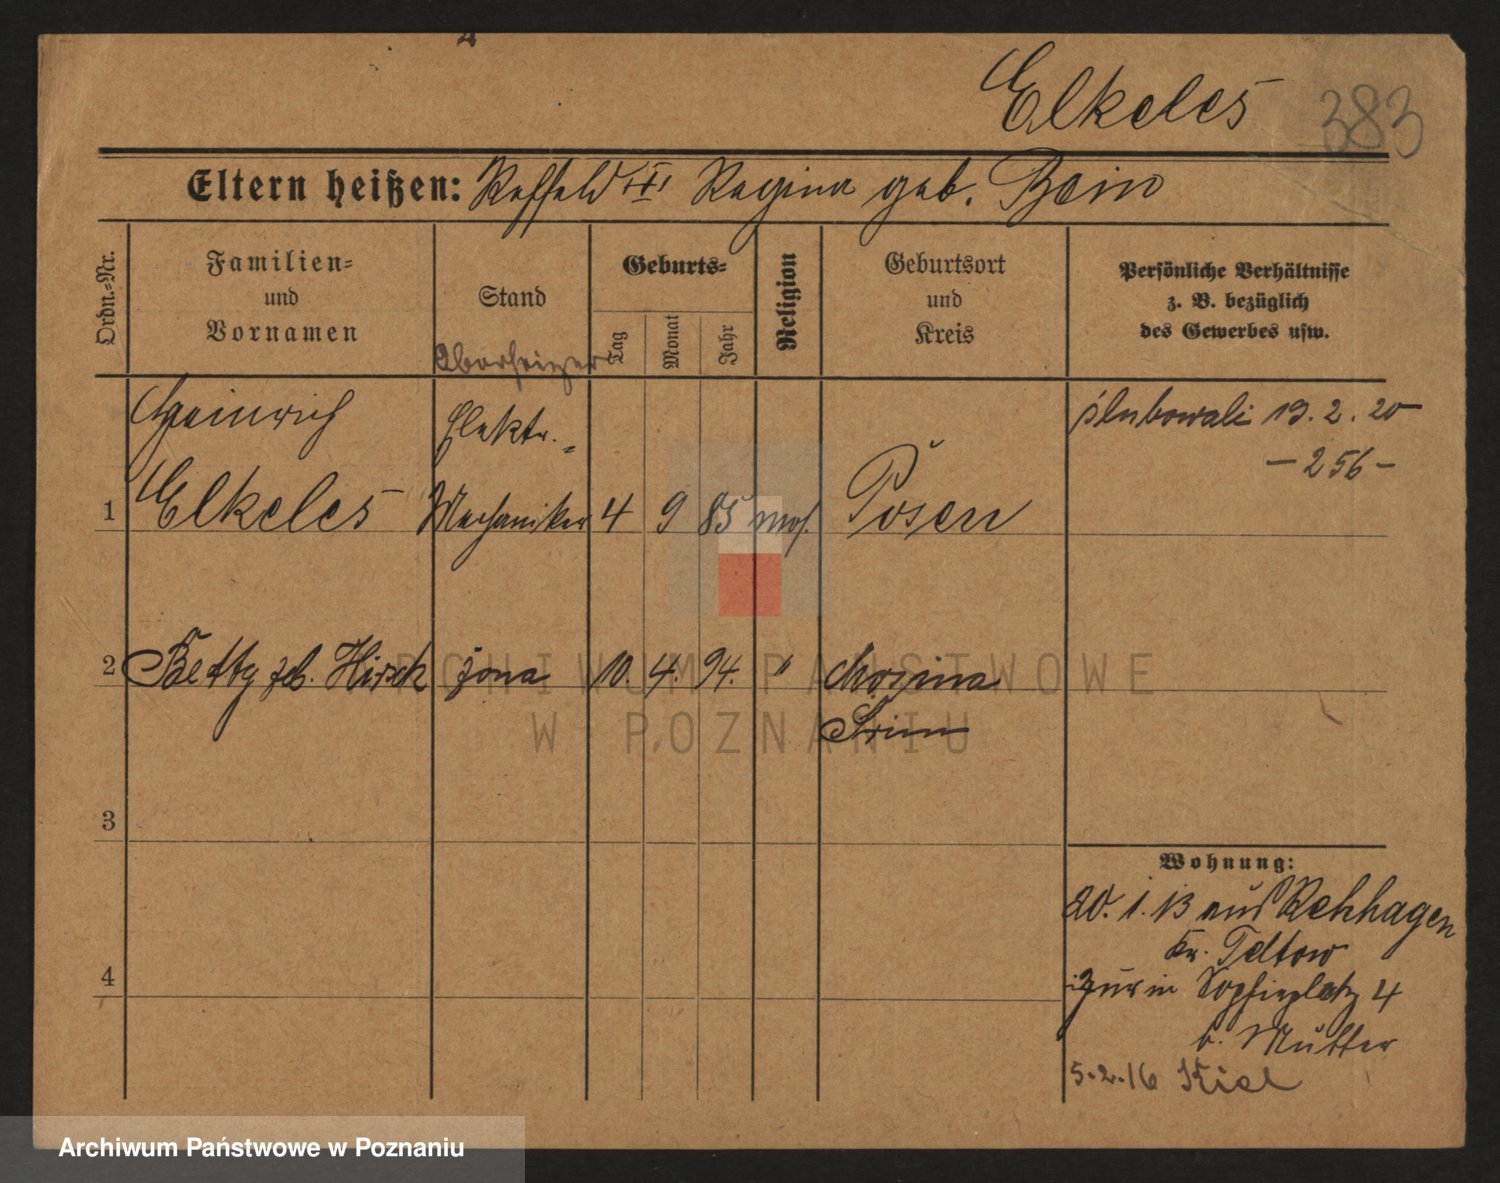 Elkeles 383
Eltern heißen: Regina geb. Bein
Ordn.-Nr.
Familien-
und
Vornamen
Stand
Geburts-
Tag
Monat
Jahr
Religion
Geburtsort
und
Kreis
Persönliche Verhältnisse
z. B. bezüglich
des Gewerbes usw.
Oberheizer
Heinrich Elektr.- ślubowali 13. 2. 20
- 256 -
1 Elkeles Mechaniker 4 9 85 mos. Posen
2 Betty geb. Hirsch żona 10. 4. 94. " Mosina
Śrim
3
4
Wohnung:
20. 1. 13 aus Rehhagen
Kr. Teltow
Sophienplatz 4
b. Mutter
5.2.16 Kiel
ARCHIWUM PAŃSTWOWE
W POZNANIU
Archiwum Państwowe w Poznaniu